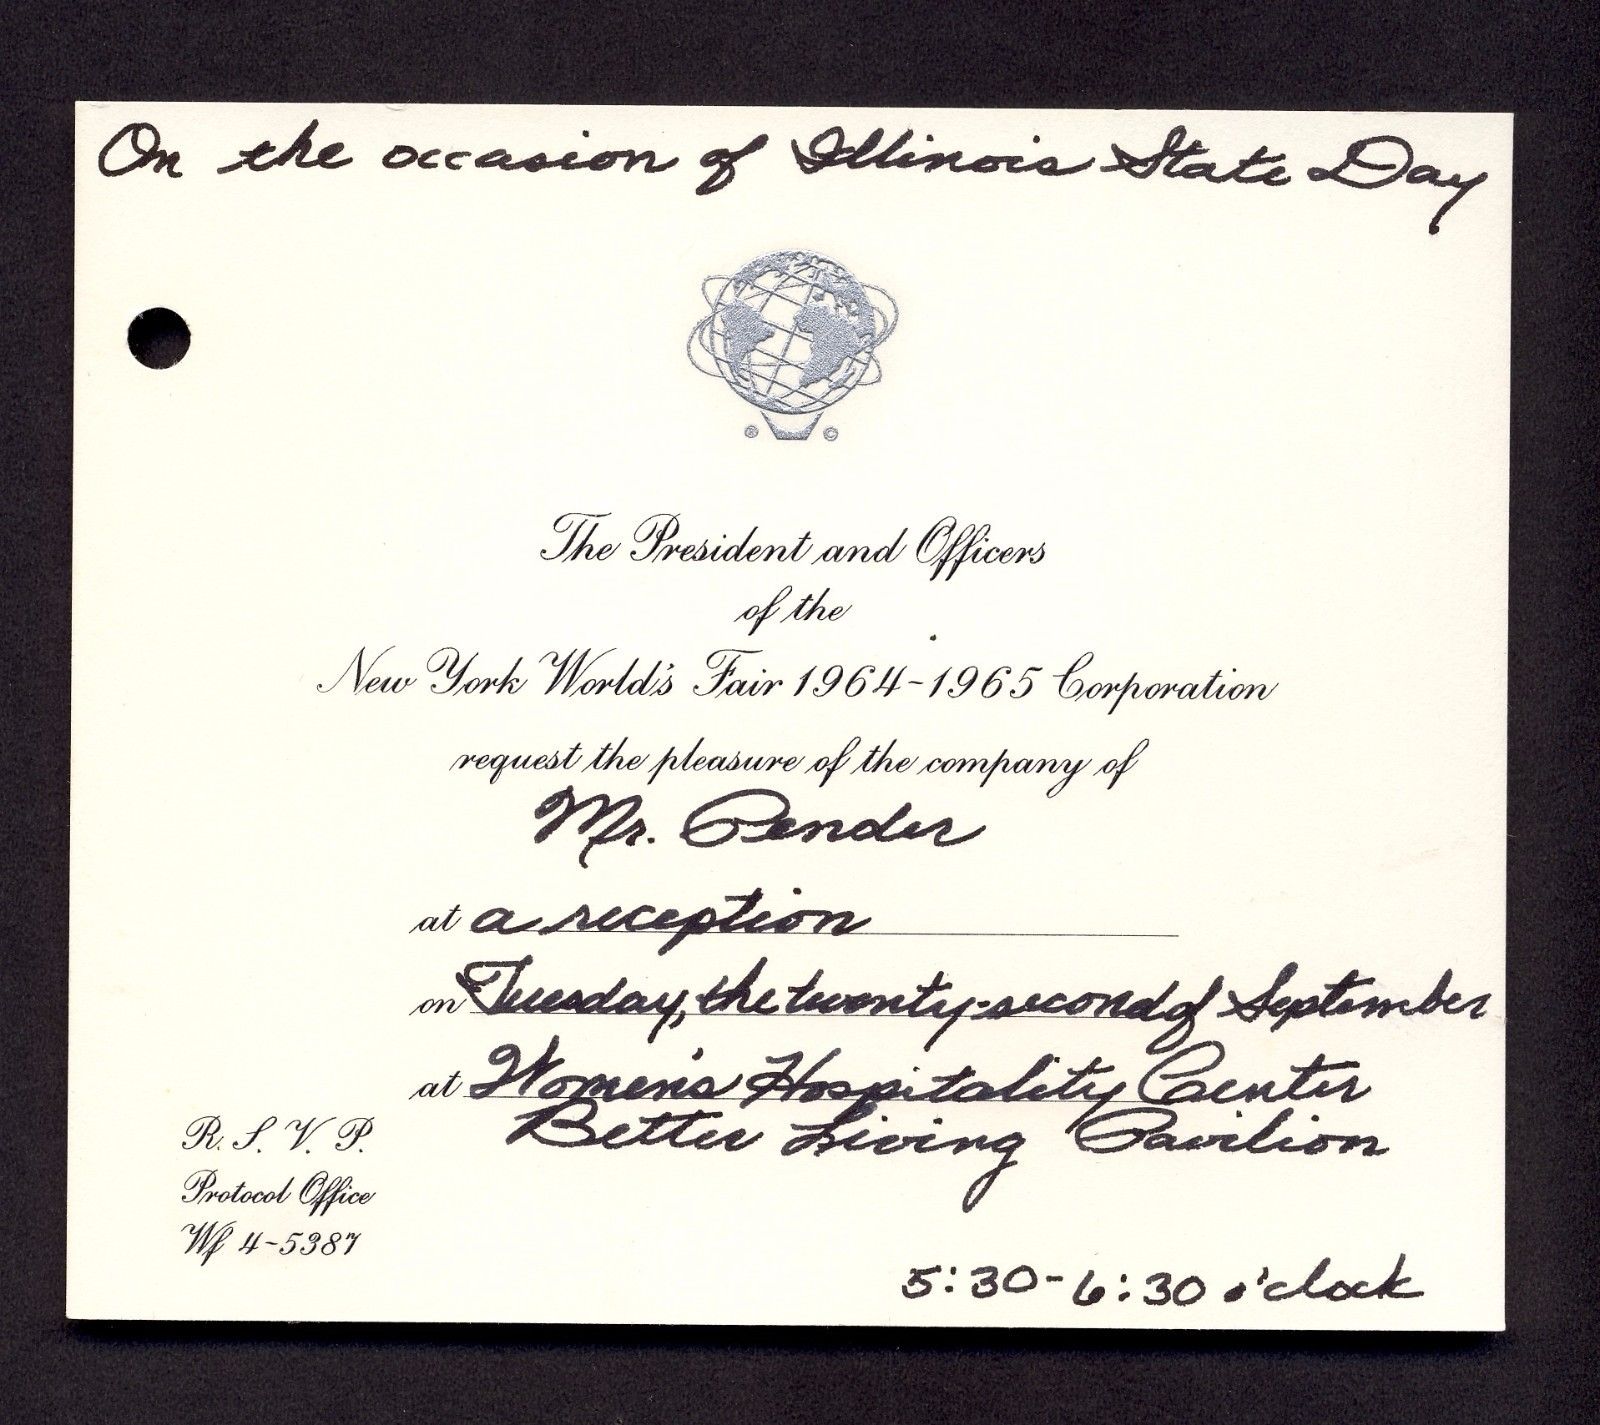 On the occasion of Illinois State Day
® ©
The President and Officers
of the
New York World's Fair 1964-1965 Corporation
request the pleasure of the company of
Mr. Pender
at a reception
on Tuesday, the twenty-second of September
at Women's Hospitality Center
Better Living Pavilion
R. S. V. P.
Protocol Office
Wf 4-5387
5:30-6:30 o'clock